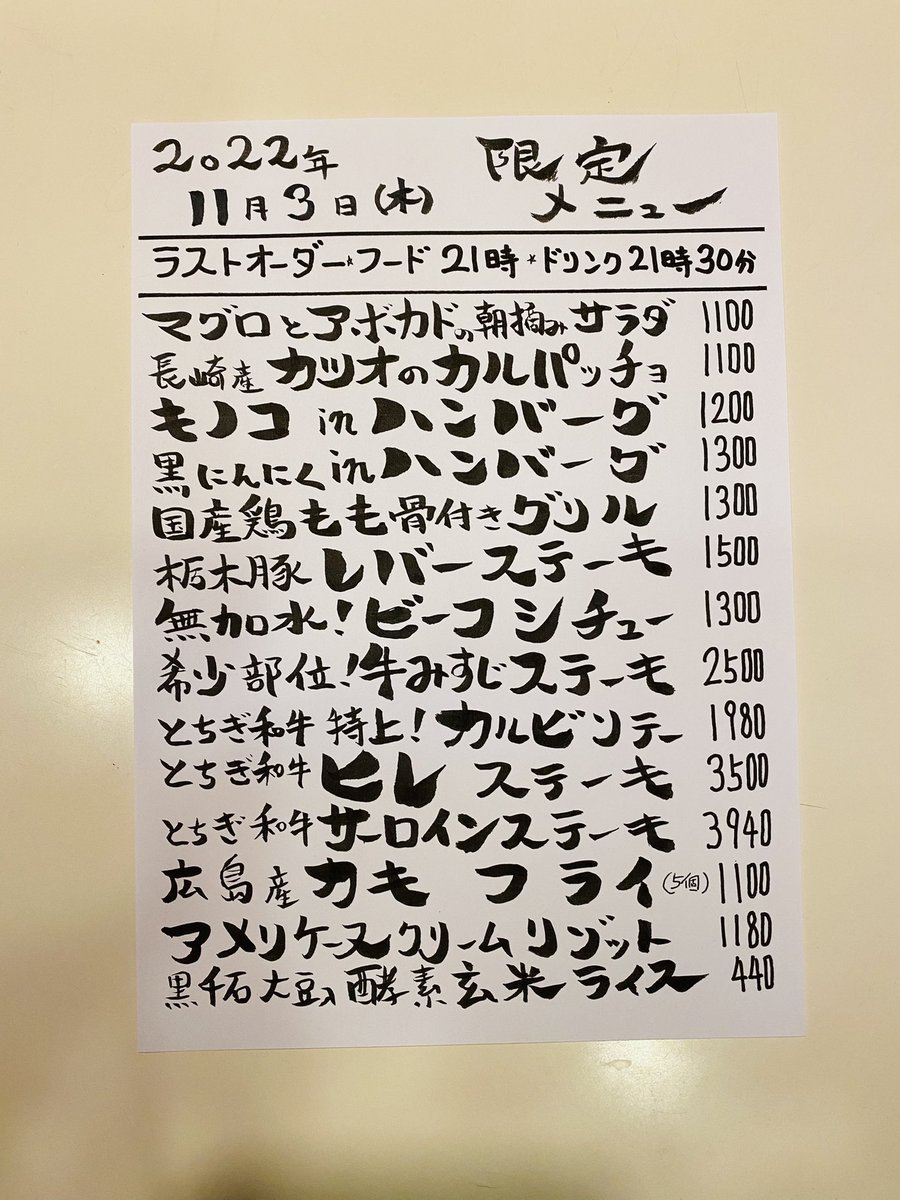 2022年 限定
11月3日(木) メニュー
ラストオーダー*フード 21時*ドリンク21時30分
マグロとアボカドの朝摘みサラダ 1100
長崎産 カツオのカルパッチョ 1100
キノコ in ハンバーグ 1200
黒にんにく in ハンバーグ 1300
国産鶏もも骨付きグリル 1300
栃木豚 レバーステーキ 1500
無加水!ビーフシチュー 1300
希少部位!牛みすじステーキ 2500
とちぎ和牛 特上!カルビソテー 1980
とちぎ和牛 ヒレ ステーキ 3500
とちぎ和牛 サーロインステーキ 3940
広島産 カキ フライ(5個) 1100
アメリケーヌクリームリゾット 1180
黒千石大豆入酵素玄米ライス 440